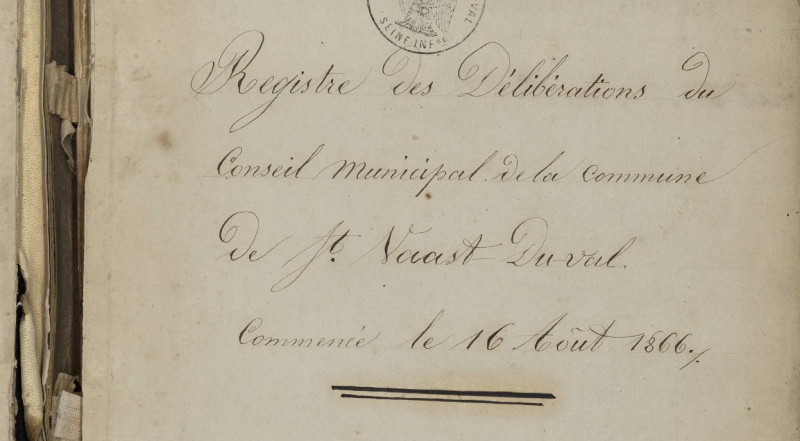 VAL
SEINE INFRE
Registre des Délibérations du
Conseil Municipal de la Commune
de St. Vaast Duval.
Commencé le 16 Août 1866./.